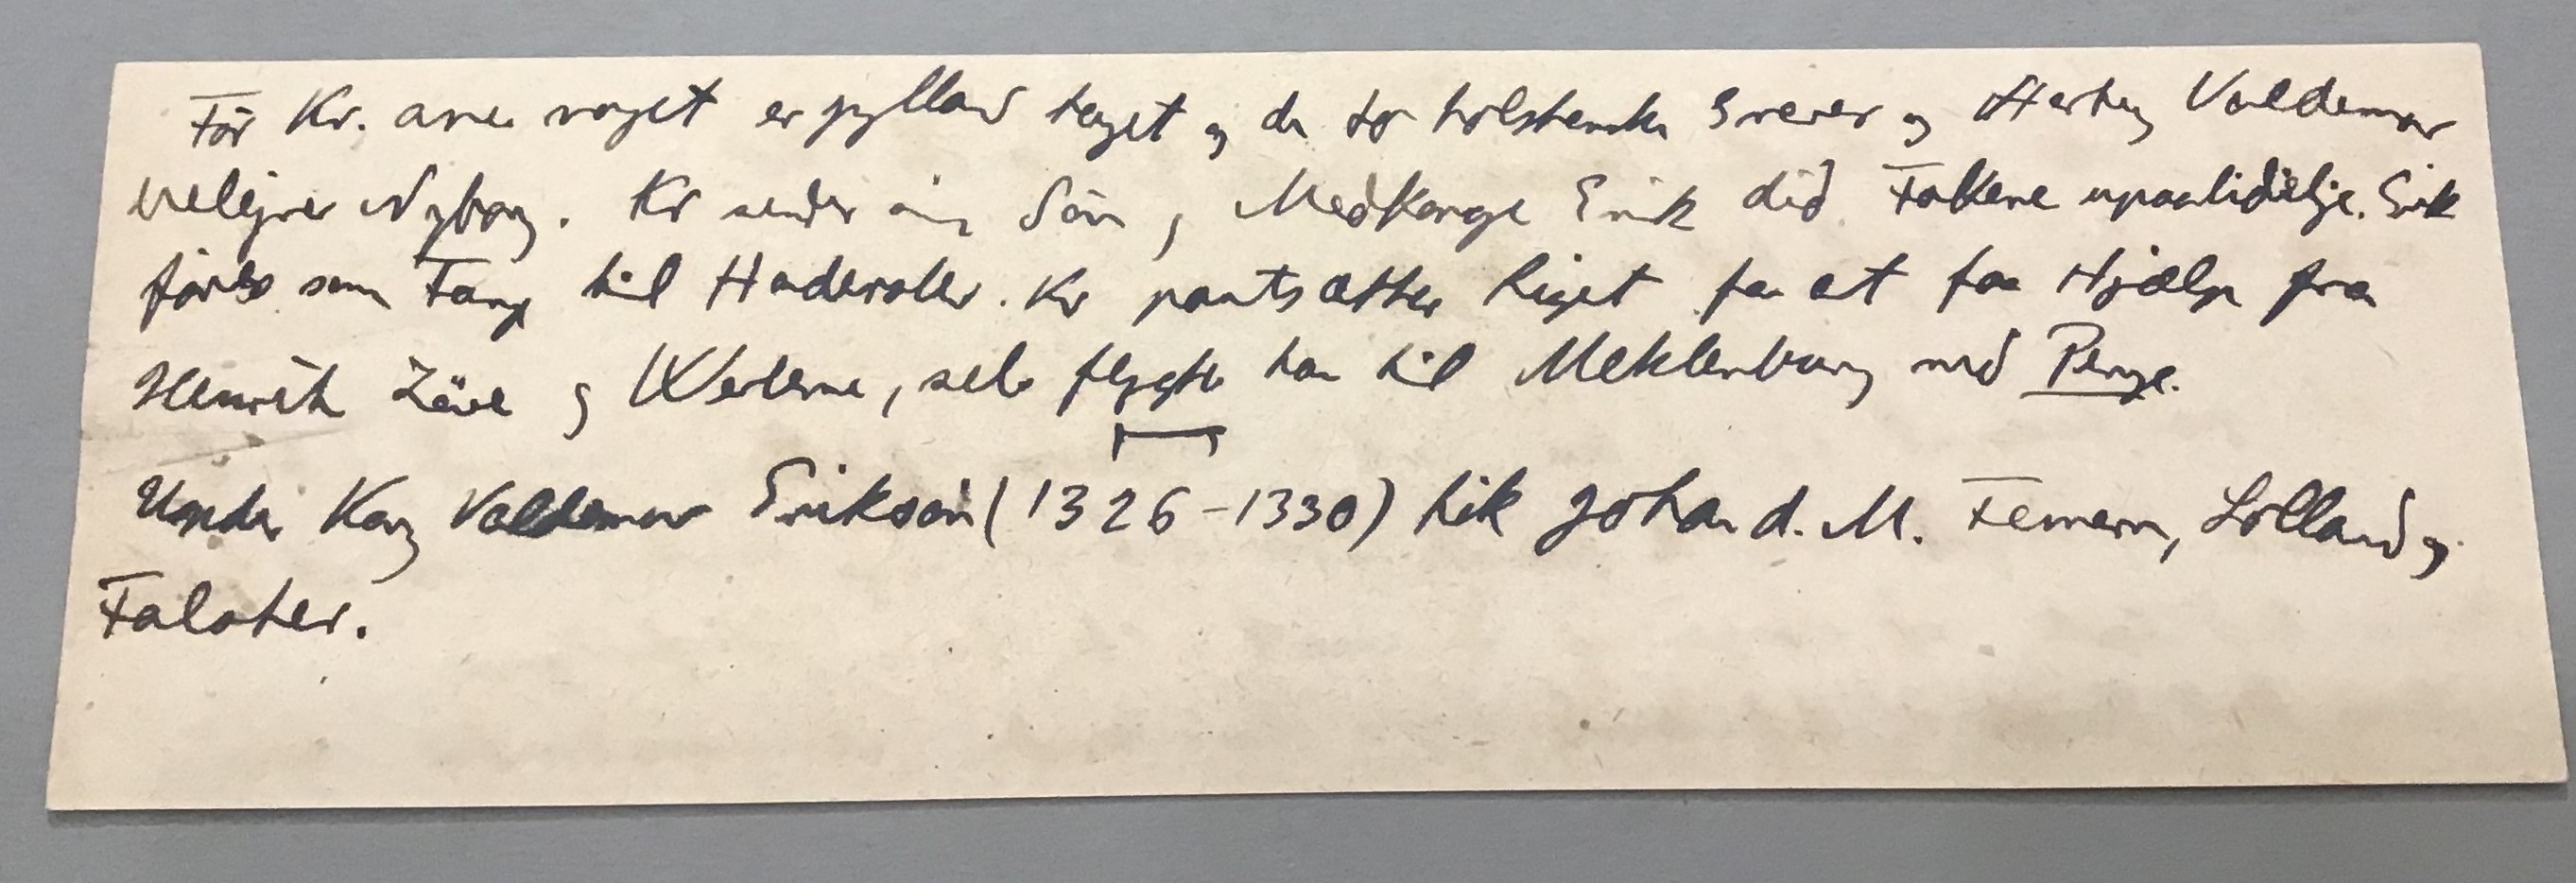 Før Kr. aner noget er Jylland taget og de to holstenske Grever og Hertug Valdemar
belejrer Nyborg. Kr sender sin Søn og Medkonge Erik did Folkene upaalidelige. Erik
føres som Fange til Haderslev. Kr pantsætter Riget for at faa Hjælp fra
Henrik Løve og Werlerne, selv flygte han til Meklenburg med Penge.
Under Kong Valdemar Eriksøn (1326-1330) fik Johan d. M. Femern, Lolland og
Falster.